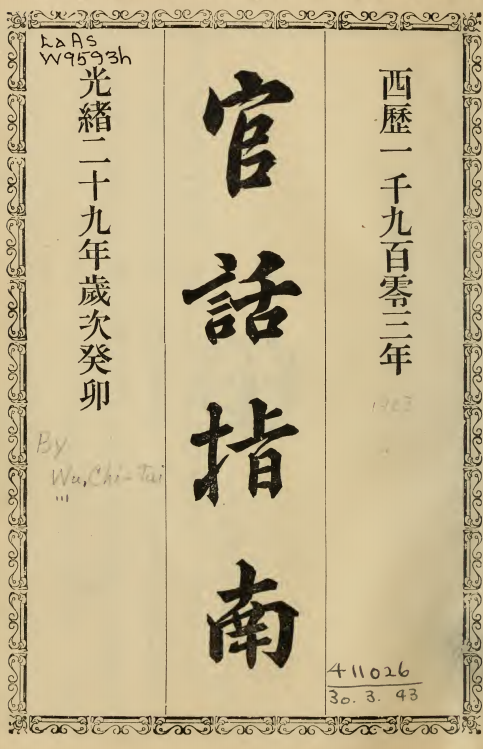 西歷一千九百零三年
官話指南
光緒二十九年歲次癸卯
LaAs
W9593h
1903
By
Wu, Chi-Tai
"'
411026
30. 3. 43